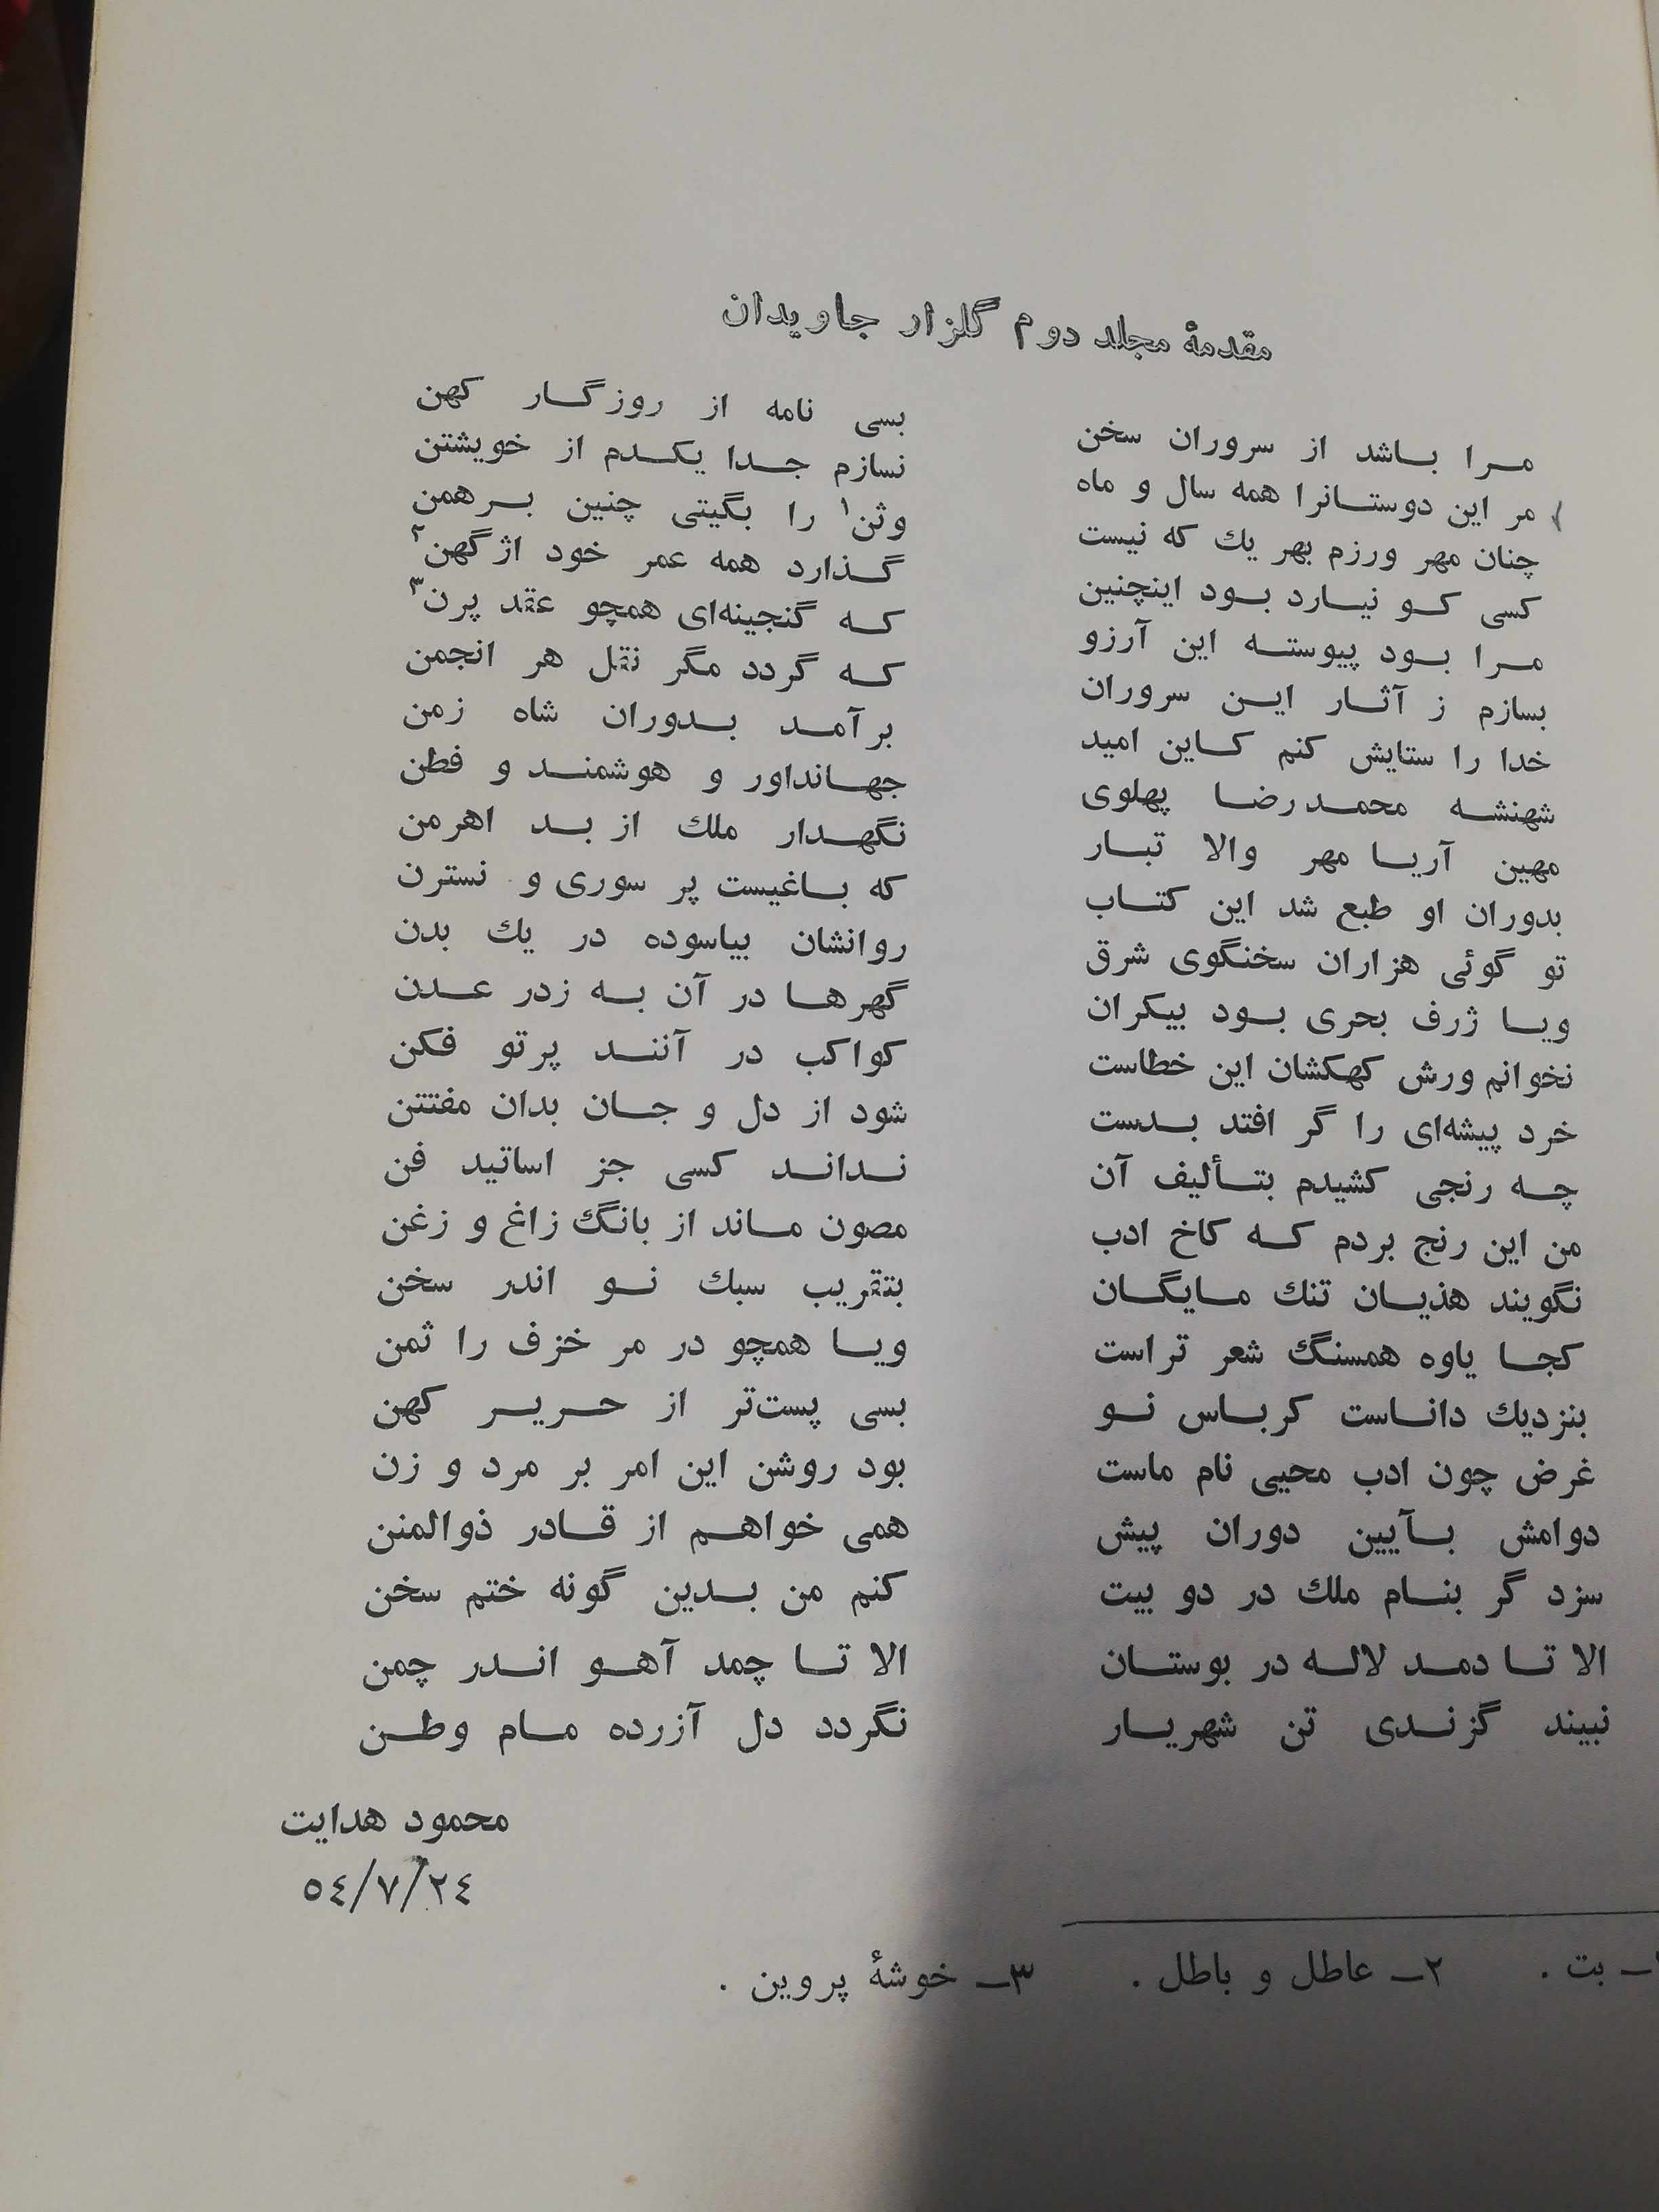 مقدمهٔ مجلد دوم گلزار جاویدان
مرا باشد از سروران سخن بسی نامه از روزگار کهن
مر این دوستانرا همه سال و ماه نسازم جدا یکدم از خویشتن
چنان مهر ورزم بهر یك که نیست وثن۱ را بگیتی چنین برهمن
کسی کو نیارد بود اینچنین گذارد همه عمر خود اژگهن۲
مرا بود پیوسته این آرزو که گنجینه‌ای همچو عقد پرن۳
بسازم ز آثار این سروران که گردد مگر نقل هر انجمن
خدا را ستایش کنم کاین امید برآمد بدوران شاه زمن
شهنشه محمدرضا پهلوی جهانداور و هوشمند و فطن
مهین آریا مهر والا تبار نگهدار ملك از بد اهرمن
بدوران او طبع شد این کتاب که باغیست پر سوری و نسترن
تو گوئی هزاران سخنگوی شرق روانشان بیاسوده در یك بدن
ویا ژرف بحری بود بیکران گهرها در آن به زدر عدن
نخوانم ورش کهکشان این خطاست کواکب در آنند پرتو فکن
خرد پیشه‌ای را گر افتد بدست شود از دل و جان بدان مفتتن
چه رنجی کشیدم بتألیف آن نداند کسی جز اساتید فن
من این رنج بردم که کاخ ادب مصون ماند از بانگ زاغ و زغن
نگویند هذیان تنك مایگان بتقریب سبك نو اندر سخن
کجا یاوه همسنگ شعر تراست ویا همچو در مر خزف را ثمن
بنزدیك داناست کرباس نو بسی پست‌تر از حریر کهن
غرض چون ادب محیی نام ماست بود روشن این امر بر مرد و زن
دوامش بآیین دوران پیش همی خواهم از قادر ذوالمنن
سزد گر بنام ملك در دو بیت کنم من بدین گونه ختم سخن
الا تا دمد لاله در بوستان الا تا چمد آهو اندر چمن
نبیند گزندی تن شهریار نگردد دل آزرده مام وطن
محمود هدایت
٥٤/٧/٢٤
۱ـ بت . ۲ـ عاطل و باطل . ۳ـ خوشهٔ پروین .